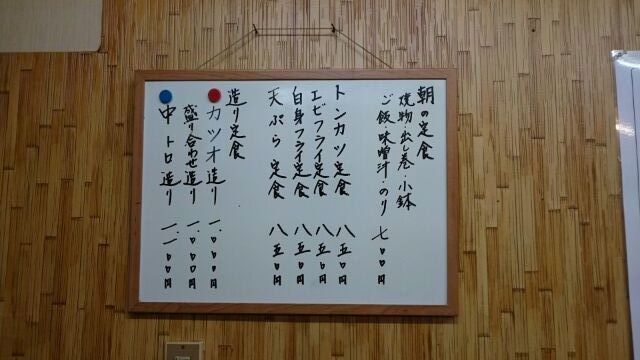 朝の定食
焼物・出し巻・小鉢
ご飯・味噌汁・のり 七〇〇円
トンカツ定食 八五〇円
エビフライ定食 八五〇円
白身フライ定食 八五〇円
天ぷら定食 八五〇円
造り定食
カツオ造り 一.〇〇〇円
盛り合わせ造り 一.〇〇〇円
中トロ造り 一.一〇〇円